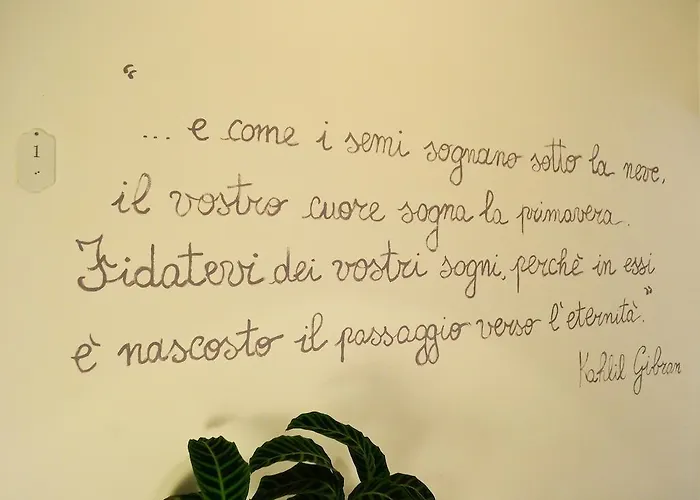 1
“
... e come i semi sognano sotto la neve,
il vostro cuore sogna la primavera.
Fidatevi dei vostri sogni, perchè in essi
è nascosto il passaggio verso l'eternità.”
Kahlil Gibran